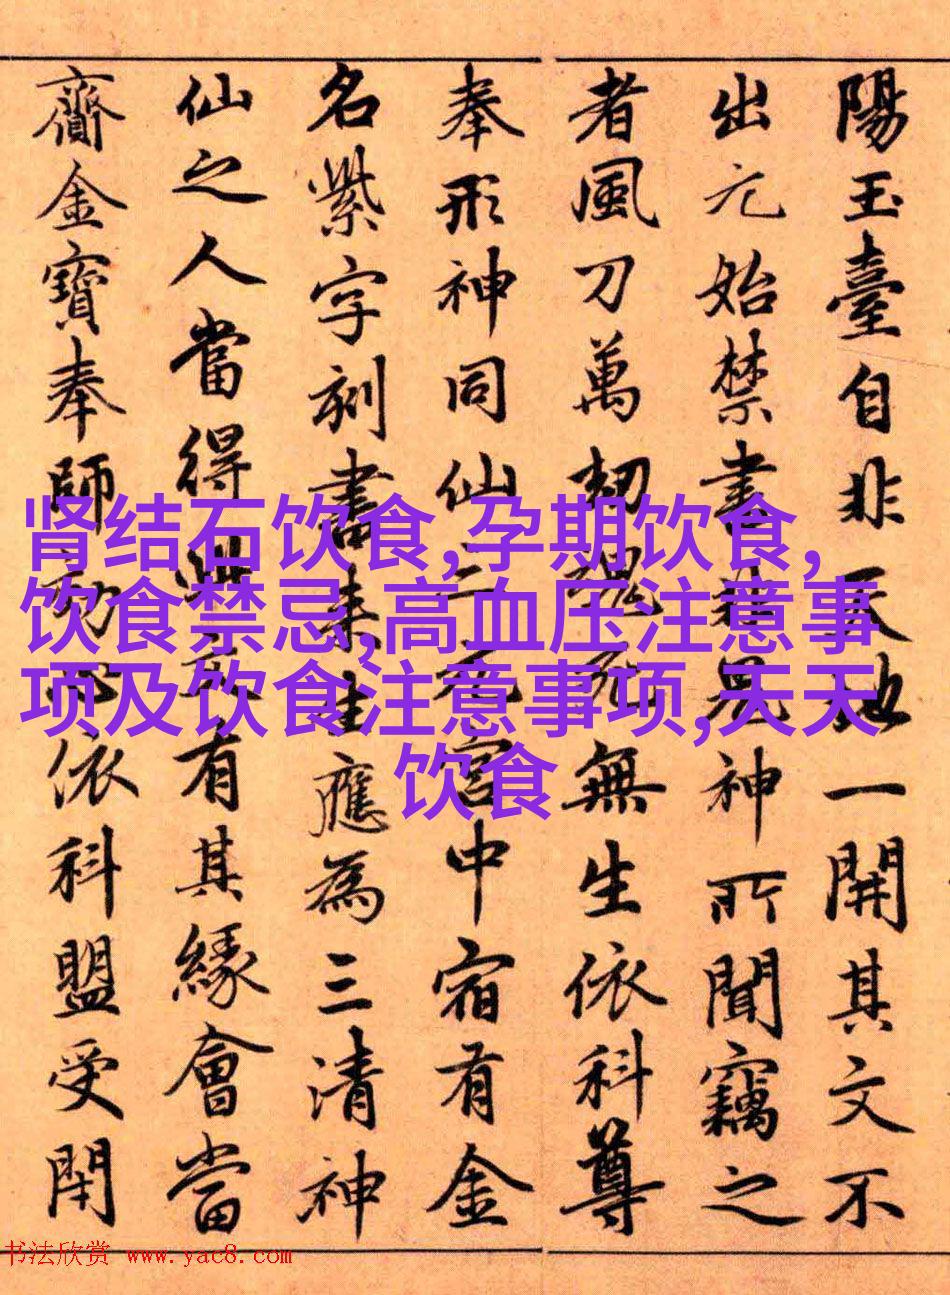 陽玉臺自非天地一開其文不
出元始禁書非鬼神所聞竊之
者風刀萬劫魂死無生依科尊
奉形神同仙二元宮中宿有金
名紫字刻書来生應為三清神
仙之人當得此文有其緣會當
齎金寶奉師心依科盟受閇
肾结石饮食,孕期饮食,
饮食禁忌,高血压注意事
项及饮食注意事项,天天
饮食
书法欣赏 www.yac8.com